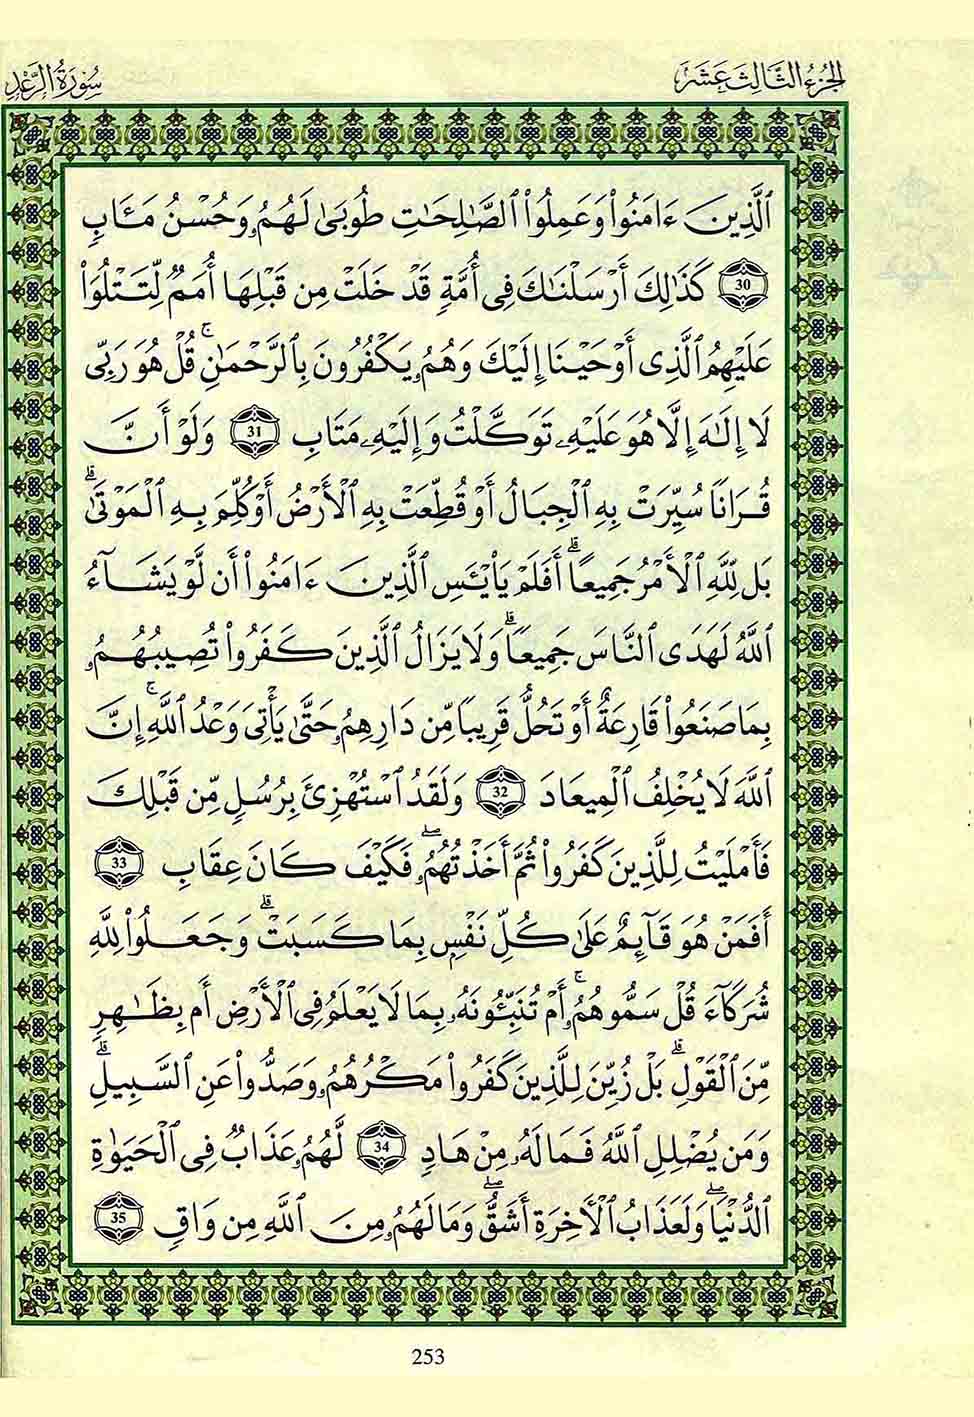 الجزء الثالث عشر
سورة الرعد
ٱلَّذِينَ ءَامَنُوا۟ وَعَمِلُوا۟ ٱلصَّـٰلِحَـٰتِ طُوبَىٰ لَهُمُۥ وَحُسْنُ مَـَٔابٍ
30 كَذَٰلِكَ أَرْسَلْنَـٰكَ فِىٓ أُمَّةٍ قَدْ خَلَتْ مِن قَبْلِهَا أُمَمٌ لِّتَتْلُوَا۟
عَلَيْهِمُ ٱلَّذِى أَوْحَيْنَا إِلَيْكَ وَهُمُۥ يَكْفُرُونَ بِٱلرَّحْمَـٰنِ ۚ قُلْ هُوَ رَبِّى
لَا إِلَـٰهَ إِلَّا هُوَ عَلَيْهِۦ تَوَكَّلْتُ وَإِلَيْهِۦ مَتَابِ 31 وَلَوْ أَنَّ
قُرَانًا سُيِّرَتْ بِهِ ٱلْجِبَالُ أَوْ قُطِّعَتْ بِهِ ٱلْأَرْضُ أَوْ كُلِّمَ بِهِ ٱلْمَوْتَىٰ ۗ
بَل لِّلَّهِ ٱلْأَمْرُ جَمِيعًا ۗ أَفَلَمْ يَا۟يْـَٔسِ ٱلَّذِينَ ءَامَنُوا۟ أَن لَّوْ يَشَآءُ
ٱللَّهُ لَهَدَى ٱلنَّاسَ جَمِيعًا ۗ وَلَا يَزَالُ ٱلَّذِينَ كَفَرُوا۟ تُصِيبُهُمُۥ
بِمَا صَنَعُوا۟ قَارِعَةٌ أَوْ تَحُلُّ قَرِيبًا مِّن دَارِهِمُۥ حَتَّىٰ يَأْتِىَ وَعْدُ ٱللَّهِ ۚ إِنَّ
ٱللَّهَ لَا يُخْلِفُ ٱلْمِيعَادَ 32 وَلَقَدُ ٱسْتُهْزِئَ بِرُسُلٍ مِّن قَبْلِكَ
فَأَمْلَيْتُ لِلَّذِينَ كَفَرُوا۟ ثُمَّ أَخَذْتُهُمُۥ ۖ فَكَيْفَ كَانَ عِقَابِ 33
أَفَمَنْ هُوَ قَآئِمٌ عَلَىٰ كُلِّ نَفْسٍ بِمَا كَسَبَتْ ۗ وَجَعَلُوا۟ لِلَّهِ
شُرَكَآءَ قُلْ سَمُّوهُمُۥ ۚ أَمْ تُنَبِّـُٔونَهُۥ بِمَا لَا يَعْلَمُ فِى ٱلْأَرْضِ أَم بِظَـٰهِرٍ
مِّنَ ٱلْقَوْلِ ۗ بَلْ زُيِّنَ لِلَّذِينَ كَفَرُوا۟ مَكْرُهُمُۥ وَصَدُّوا۟ عَنِ ٱلسَّبِيلِ ۗ
وَمَن يُضْلِلِ ٱللَّهُ فَمَا لَهُۥ مِنْ هَادٍ 34 لَّهُمُۥ عَذَابٌ فِى ٱلْحَيَوٰةِ
ٱلدُّنْيَا ۖ وَلَعَذَابُ ٱلْأَخِرَةِ أَشَقُّ ۖ وَمَا لَهُمُۥ مِنَ ٱللَّهِ مِن وَاقٍ 35
253